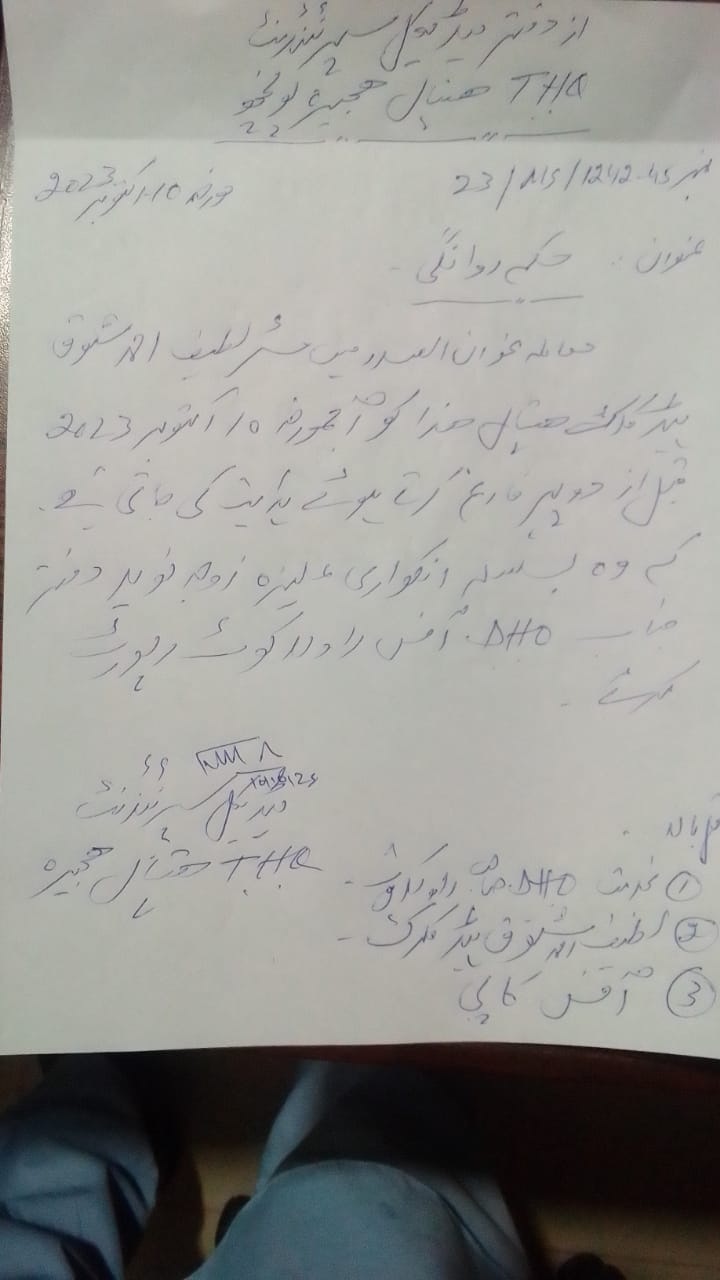 از دفتر میڈیکل سپرنٹنڈنٹ
THQ ہسپتال ہجیرہ پونچھ
نمبر 1242-45/MS/23 مورخہ 10 اکتوبر 2023
عنوان :. حکم روانگی ۔
معاملہ عنوان الصدر میں مسٹر لطیف احمد شوق
ہیڈ کلرک ہسپتال ھذا کو آج مورخہ 10 اکتوبر 2023
قبل از دوپہر فارغ کرتے ہوئے ہدایت کی جاتی ہے ۔
کہ وہ بسلسلہ انکوائری علیزہ زوجہ نوید دفتر
جناب DHO آفس راولاکوٹ رپورٹ
کرے ۔
میڈیکل سپرنٹنڈنٹ
THQ ہسپتال ہجیرہ
① بخدمت DHO صاحب راولاکوٹ ۔
② لطیف احمد شوق ہیڈ کلرک ۔
③ آفس کاپی